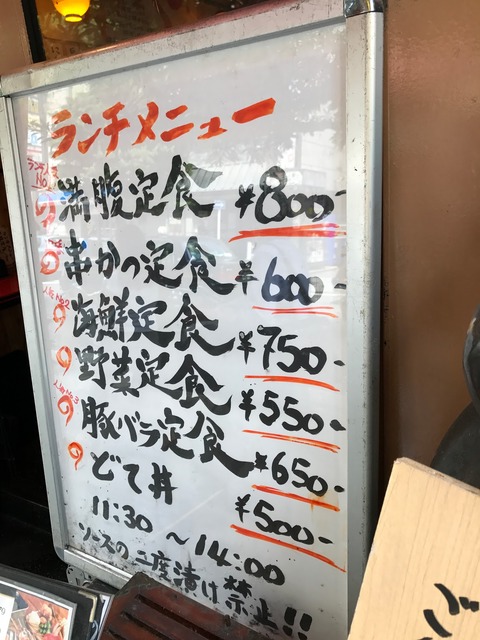 ランチメニュー
満腹定食 ¥800-
串かつ定食 ¥600-
人気No2
海鮮定食 ¥750-
野菜定食 ¥550-
人気No3
豚バラ定食 ¥650-
どて丼 ¥500-
11:30 ～14:00
ソースの二度漬け禁止!!